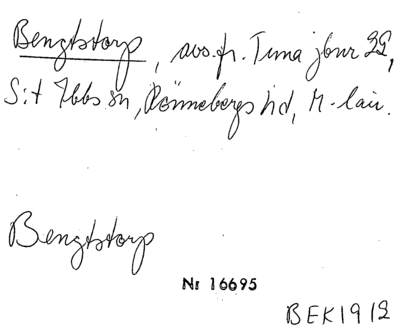 Bengtstorp, avs. fr. Tuna jbnr 22,
S:t Ibbs sn, Rönnebergs hd, M-län.
Bengtstorp
Nr 16695
BEK 1912